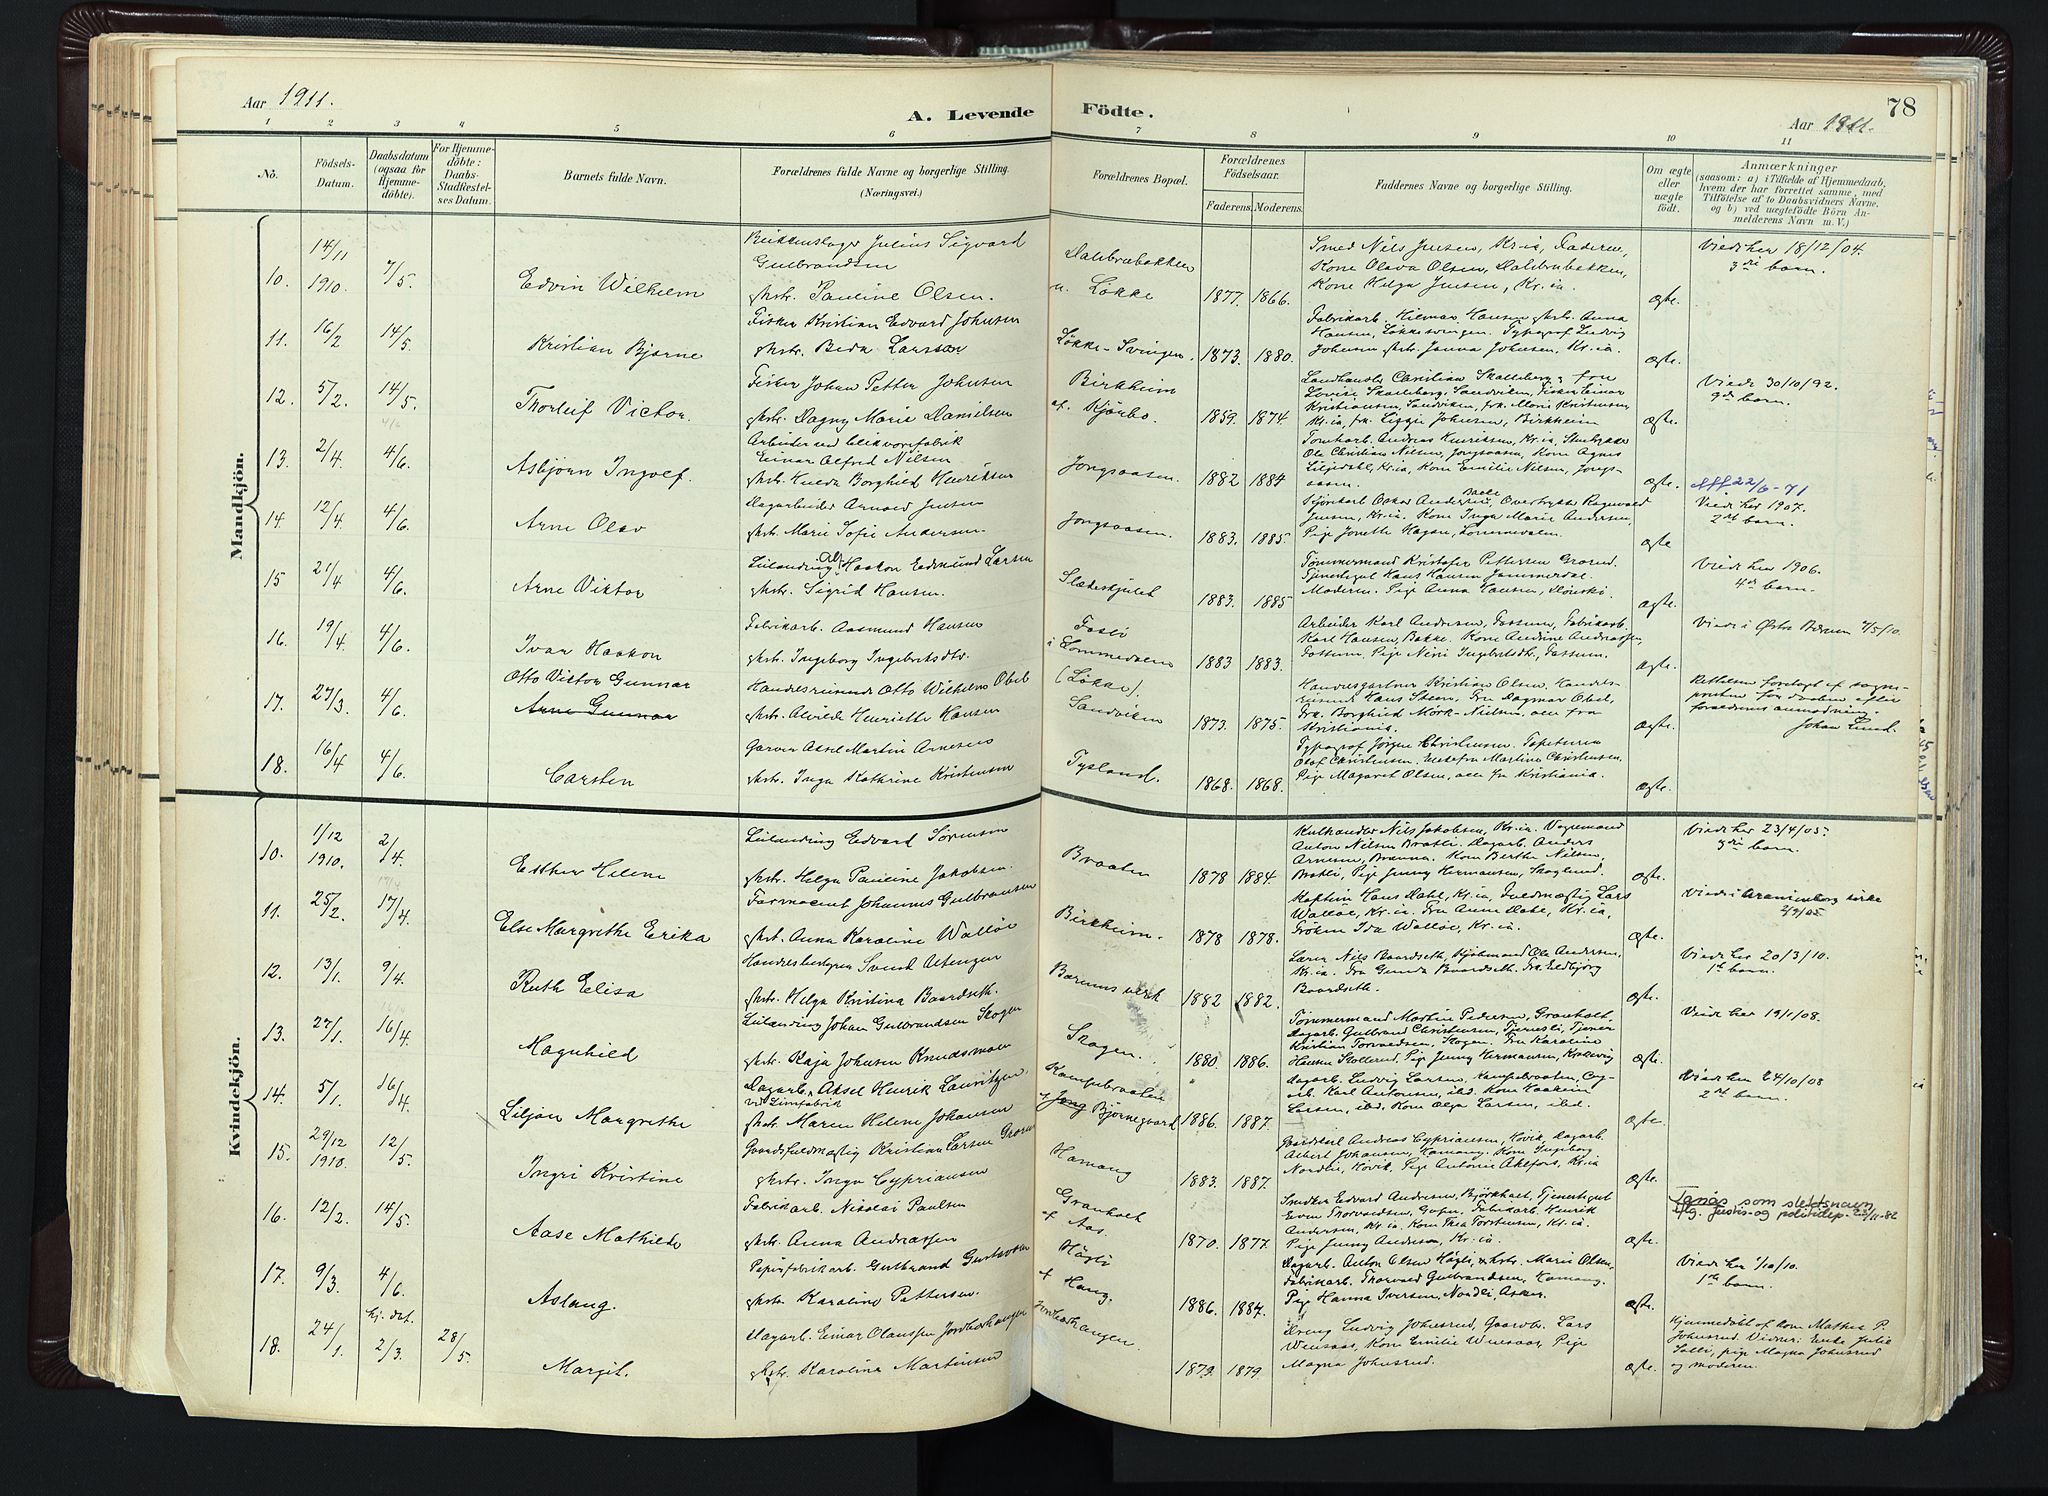 Aar 1911.
A. Levende
Födte.
78
Aar 1911.
1 2 3 4 5 6 7 8 9 10 11
No.
Födsels-
Datum.
Daabsdatum
(ogsaa for
Hjemme-
döbte).
For Hjemme-
döbte:
Daabs-
Stadfæstel-
ses Datum.
Barnets fulde Navn.
Forældrenes fulde Navne og borgerlige Stilling.
(Næringsvei.)
Forældrenes Bopæl.
Forældrenes
Födselsaar.
Faderens. Moderens.
Faddernes Navne og borgerlige Stilling.
Om ægte
eller
uægte
födt.
Anmærkninger
(saasom: a) i Tilfælde af Hjemmedaab,
hvem der har forrettet samme, med
Tilföielse af to Daabsvidners Navne,
og b) ved uægtefödte Börn An-
melderens Navn m. V.)
Mandkjön.
10. 14/11 1910. 7/5. Edvin Wilhelm
Blikkenslager Julius Sigvard
Gulbrandsen
Hstr. Pauline Olsen.
Dalsbrubakken
u. Løkke
1877. 1866.
Smed Nils Jensen, Kr.ia, Faderen,
Kone Olava Olsen, Dalsbrubakken,
Kone Helga Jensen, Kr.ia.
ægte.
Viede her 18/12/04.
3die barn.
11. 16/2 14/5. Kristian Bjarne
Fisker Kristian Edvard Johnsen
Hstr. Beda Larsson
Løkke-Svingen.
1873. 1880.
Fabrikarb. Hilmar Hansen Hstr. Anna
Hansen, Løkkesvingen. Typograf Ludvig
Johnsen Hstr. Janna Johnsen, Kr.ia.
ægte.
12. 5/2. 14/5. Thorleif Victor.
Fisker Johan Petter Johnsen
Hstr. Dagny Marie Danielsen
Birkheim
af Kjørbo.
1859. 1874.
Landhandler Christian Skalleberg, fru
Lovise Skalleberg, Sandviken, Fisker Einar
Kristiansen, Sandviken, frk. Marie Kristensen,
Kr.ia, frk. Lizzie Johnsen, Birkheim
ægte.
Viede 30/10/92.
9de barn.
13. 2/4. 4/6. Asbjørn Ingolf.
Arbeider ved blikvarefabrik
Einar Alfred Nilsen
Hstr. Hulda Borghild Henriksen
Jongsaasen.
1882 1884
Tomtearb. Andreas Henriksen, Kr.ia, Stenhugger
Ole Christian Nilsen, Jongsaasen, Kone Agnes
Liljedahl, Kr.ia, Kone Emilie Nilsen, Jongs-
aasen.
ægte.
22/6-71
14 12/4. 4/6. Arne Olav
Dagarbeider Arnold Jensen
Hstr. Marie Sofie Andersen.
Jongsaasen.
1883. 1885.
Jensen, Kr.ia. Kone Inga Marie Andersen,
Pige Jonette Hagen, Lommedalen.
ægte
Viede her 1907.
2det barn.
15 21/4 4/6. Arne Viktor
Leilending Haakon Edmund Larsen
Hstr. Sigrid Hansen.
Slæbeskjulet
1883. 1885
Tømmermand Kristofer Pettersen Grorud.
Tjenestegut Hans Hansen Jammerdal.
Moderen. Pige Anna Hansen,
ægte.
Viede her 1906.
4de barn.
16. 19/4. 4/6. Ivar Haakon
Fabrikarb. Aasmund Hansen
Hstr. Ingeborg Ingebretsdtr.
i Lommedalen
1883 1883.
Arbeider Karl Andersen, Fossum, Fabrikarb.
Karl Hansen, Bakke. Kone Andrine Andreassen,
Fossum. Pige Nini Ingebretsdtr., Fossum.
ægte.
Viede i Østre Bærum 7/5/10.
17. 27/3. 4/6. Otto Victor Gunnar
Arne Gunnar
Handelsreisende Otto Wilhelm Obel
Hstr. Alvilde Henriette Hansen
(Løkke).
Sandviken
1873. 1875.
Handelsgartner Kristian Olsen. Handels-
reisende Hans Steen. Fru Dagmar Obel,
Frk. Borghild Mørk-Nielsen, alle fra
Kristiania.
ægte.
Rettelsen foretaget af sogne-
presten før daaben efter
forældrenes anmodning
Johan Lund.
18. 16/4 4/6. Carsten
Garver Aksel Martin Arnesen
Hstr. Inga Kathrine Kristensen
Tysland.
1868. 1868.
Typograf Jørgen Christensen. Tapetserer
Olaf Christensen. Enkefru Martine Christensen.
Pige Magaret Olsen, alle fr. Kristiania.
ægte.
Kvindekjön.
10. 1/12 1910. 2/4. Esther Helene
Leilending Edvard Sørensen
Hstr. Helga Pauline Jakobsen.
Braaten
1878 1884.
Kulhandler Nils Jakobsen, Kr.ia. Vognmand
Anton Nilsen Bratli. Dagarb. Anders
Arnesen, Brænna. Kone Berthe Nilsen,
Bratli, Pige Jenny Hermansen, Skoglund.
ægte.
Viede her 23/4/05.
3die barn.
11. 25/2. 17/4. Else Margrethe Erika
Farmaceut Johannes Gulbransen
Hstr. Anna Karoline Walløe
Birkheim.
1878 1878.
Kaptein Hans Dahl, Kr.ia, Fuldmægtig Lars
Walløe, Kr.ia. Fru Anne Dahl, Kr.ia,
Frøken Ida Walløe, Kr.ia.
ægte.
Viede i Uranienborg kirke
2/9/05
12. 13/1. 9/4. Ruth Elisa
Handelsbestyrer Svend Altenger
Hstr. Helga Kristina Baardseth.
Bærums verk
1882 1882.
Lærer Nils Baardseth, Kjøbmand Ole Andersen,
Kr.ia. Fru Gunda Baardseth. Fru Eldbjørg
Baardseth.
ægte.
Viede her 20/3/10.
1ste barn.
13. 27/1. 16/4. Magnhild
Leilending Johan Gulbrandsen Skogen
Hstr. Kaja Johnsen Knudsmoen
Skogen.
1880. 1886.
Tømmermand Martin Pedersen, Granholt.
Dagarb. Gulbrand Christensen, Tjernsli, Tjener
Kristian Torvaldsen, Skogen. Fru Karoline
Hansen Skollerud, Pige Jenny Hermansen,
ægte.
Viede her 19/1/08.
14. 5/1. 16/4. Liljan Margrethe
Dagarb. Aksel Henrik Lauritzen
ved Limfabrik
Hstr. Maren Helene Johansen
Kampebraaten
Jong Bjørnegaard
1886. 1887.
Dagarb. Ludvig Larsen, Kampebraaten, Dag-
arb. Karl Antonsen, ibd. Kone Haakine
Larsen, ibd. Kone Olga Larsen, ibd.
ægte.
Viede her 24/10/08
2det barn.
15. 29/12 1910. 12/5. Ingri Kristine
Gaardsfuldmægtig Kristian Larsen
Hstr. Inga Cypriansen
Hamang
1883. 1887.
Gaardskarl Andreas Cypriansen, Høvik, Dagarb.
Albert Johansen, Hamang. Kone Ingeborg
Nordli, Høvik. Pige Antonie Ahlfors, Kr.ia
ægte.
16. 12/2. 14/5. Aase Mathilde
Fabrikarb. Nikolai Paulsen
Hstr. Anna Andreassen
Granholt
af Aas
1870. 1877.
Snedker Edvard Andersen, Bjørkholt, Tjenestegut
Even Thorvaldsen, Fabrikarb. Henrik
Andersen, Kr.ia. Kone Thea Torstensen, Kr.ia.
Pige Jenny Andersen, Kr.ia.
ægte.
som slektsnavn
iflg. Justis- og politidep. 23/11-82
17. 9/3. 4/6. Aslaug.
Papirfabrikarb. Gulbrand Gustavsen
Hstr. Karoline Pettersen.
Høgli
af Haug.
1886. 1884.
Dagarb. Anton Olsen Høgli, Hstr. Marie Olsen,
Fabrikarb. Thorvald Gulbrandsen, Hamang,
Pige Hanna Iversen, Nordli, Asker.
ægte.
Viede her 1/10/10.
1ste barn.
18. 24/1. hj. døt. 2/3. 28/5. Margit.
Dagarb. Einar Olaussen Jordbærhaugen
Hstr. Karoline Martinsen
Jordbærhaugen.
1879. 1879
Dreng Ludvig Johnsrud, Gaardbr. Lars
Wensaas, Kone Emilie Wensaas, Pige
Magna Johnsrud.
ægte.
Hjemmedøbt af kone Mathea P.
Johnsrud. Vidner: Enke Julie
pige Magna Johnsrud
og moderen.